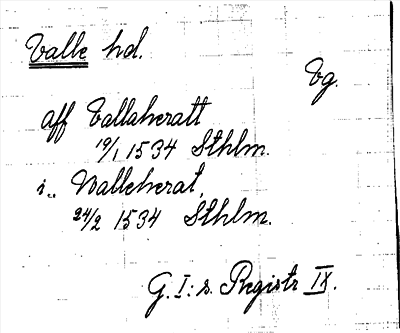 Valle hd.
Vg.
aff Vallaheratt
19/1 1534 Sthlm.
i.. Walleherat,
24/2 1534 Sthlm.
G. I: s. Registr IX.